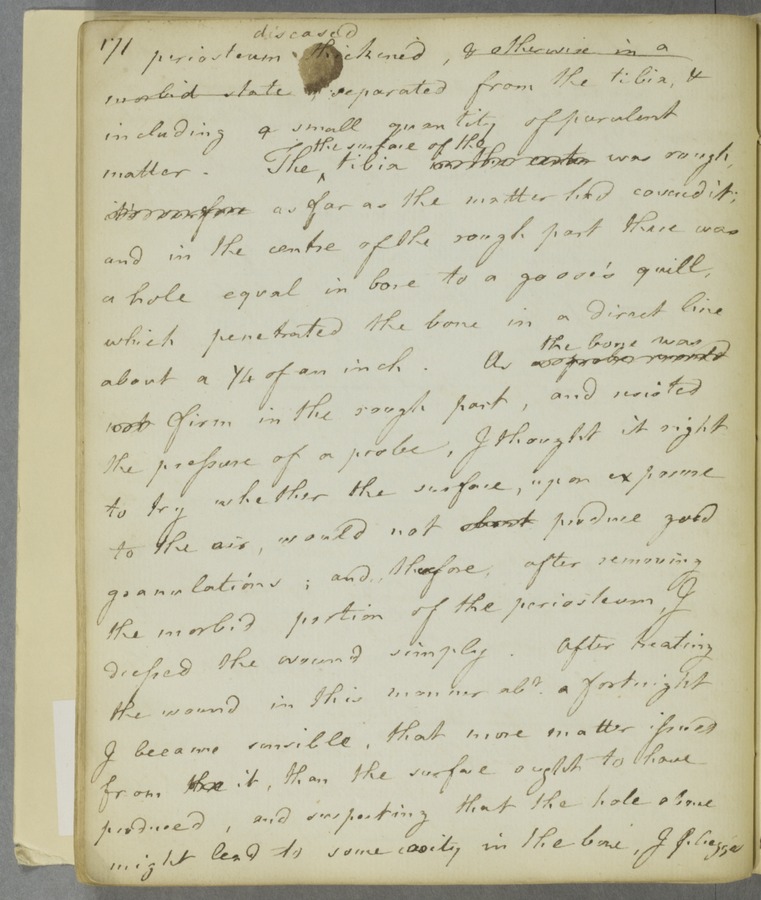 171
diseased
periosteum thickened, & otherwise in a
morbid state separated from the tibia, &
including a small quantity of purulent
the surface of the
matter. The tibia was rough,
as far as the matter had covered it;
and in the centre of the rough part there was
a hole equal in bore to a goose's quill,
which penetrated the bone in a direct line
the bone was
about a 1/4 of an inch. As
not firm in the rough part, and resisted
the pressure of a probe, I thought it right
to try whether the surface, upon exposure
to the air, would not produce good
granulations; and, therefore, after removing
the morbid portion of the periosteum, I
dressed the wound simply. After treating
the wound in this manner abt. a fortnight
I became sensible, that more matter issued
from the it, than the surface ought to have
produced, and suspecting that the hole above
might lead to some cavity in the bone, I